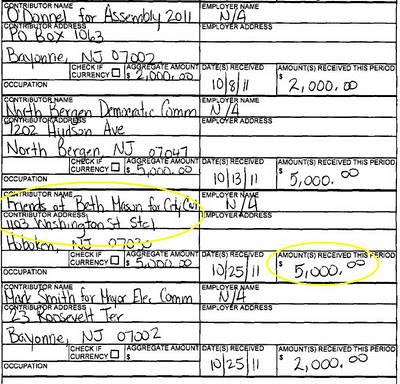 CONTRIBUTOR NAME EMPLOYER NAME
O'Donnel for Assembly 2011 N/A
CONTRIBUTOR ADDRESS EMPLOYER ADDRESS
PO Box 1063
Bayonne, NJ 07002
CHECK IF CURRENCY AGGREGATE AMOUNT $ 2,000.00 DATE(S) RECEIVED 10/8/11 AMOUNT(S) RECEIVED THIS PERIOD $ 2,000.00
OCCUPATION
CONTRIBUTOR NAME EMPLOYER NAME
North Bergen Democratic Comm N/A
CONTRIBUTOR ADDRESS EMPLOYER ADDRESS
7202 Hudson Ave
North Bergen, NJ 07047
CHECK IF CURRENCY AGGREGATE AMOUNT $ 5,000.00 DATE(S) RECEIVED 10/13/11 AMOUNT(S) RECEIVED THIS PERIOD $ 5,000.00
OCCUPATION
CONTRIBUTOR NAME EMPLOYER NAME
Friends of Beth Mason for City N/A
CONTRIBUTOR ADDRESS EMPLOYER ADDRESS
1103 Washington St Ste 1
Hoboken, NJ 07030
CHECK IF CURRENCY AGGREGATE AMOUNT $ 5,000.00 DATE(S) RECEIVED 10/25/11 AMOUNT(S) RECEIVED THIS PERIOD $ 5,000.00
OCCUPATION
CONTRIBUTOR NAME EMPLOYER NAME
Mark Smith for Mayor Elec Comm N/A
CONTRIBUTOR ADDRESS EMPLOYER ADDRESS
23 Roosevelt Ter
Bayonne, NJ 07002
CHECK IF CURRENCY AGGREGATE AMOUNT $ DATE(S) RECEIVED 10/25/11 AMOUNT(S) RECEIVED THIS PERIOD $ 2,000.00
OCCUPATION